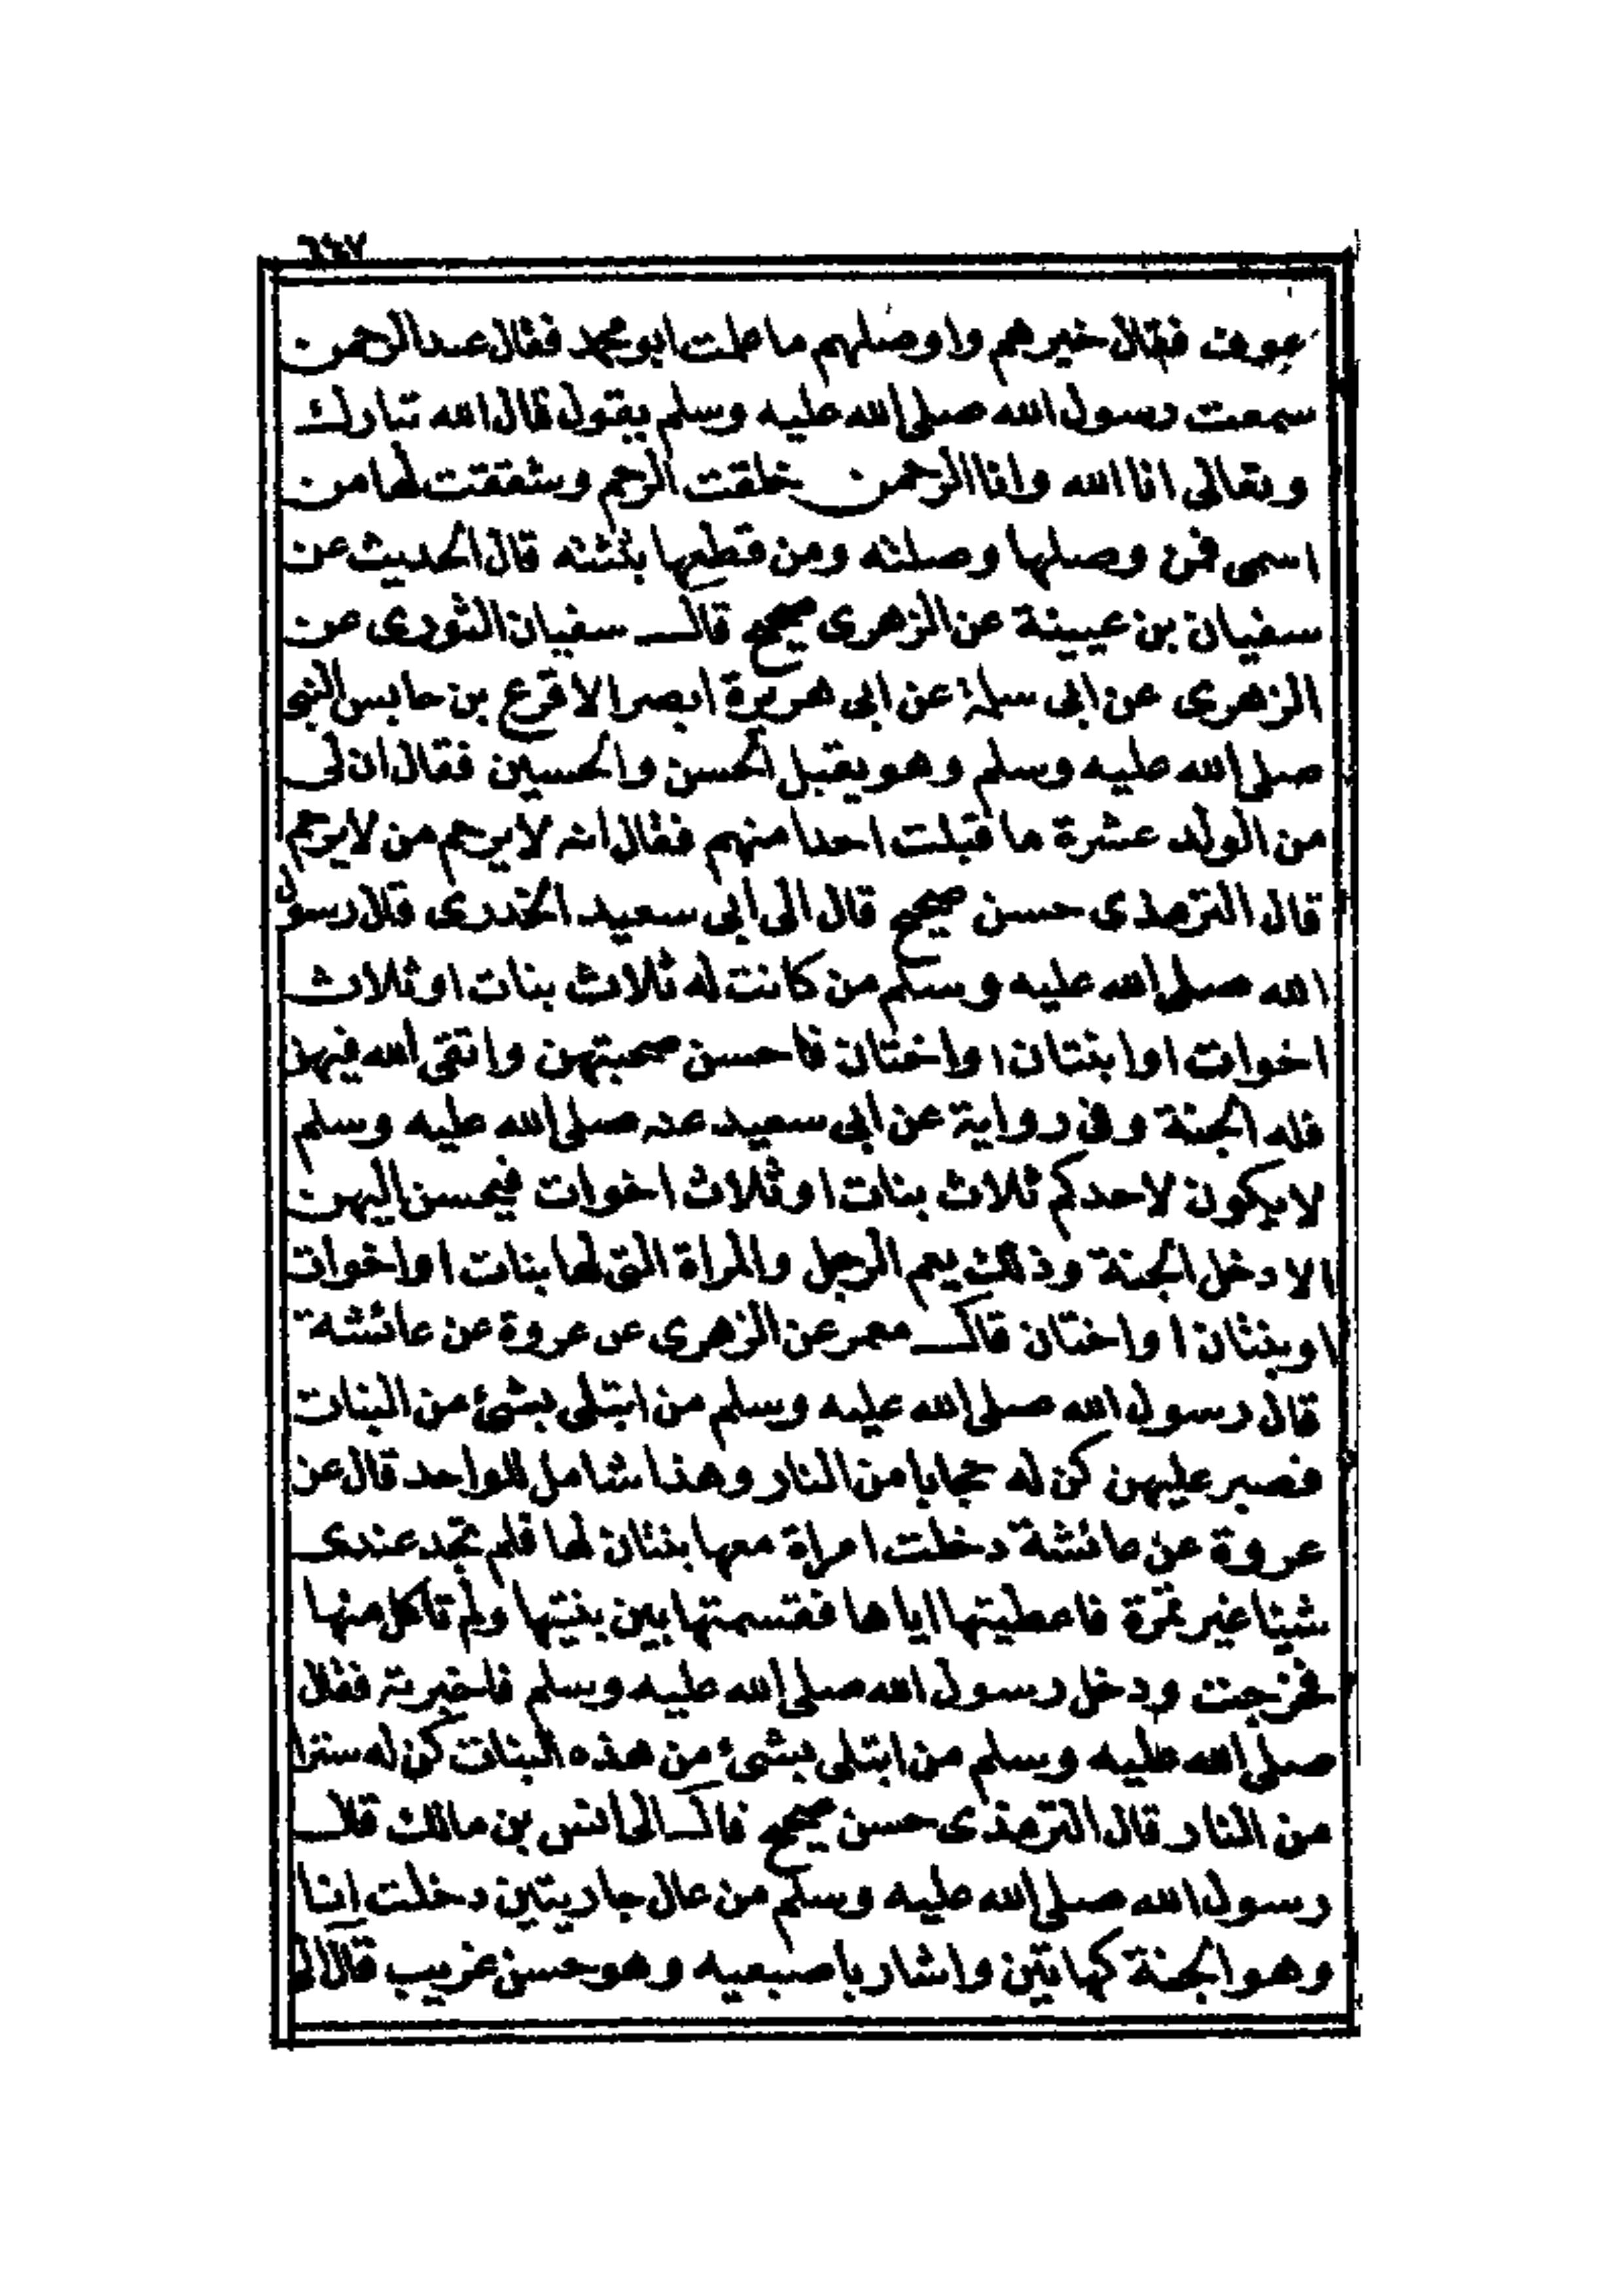 عوف فقال خيرهم واوصلهم ما علمت ابو محمد فقال عبد الرحمن
سمعت رسول الله صلى الله عليه وسلم يقول قال الله تبارك
وتعالى انا الله وانا الرحمن خلقت الرحم وشققت لها من
اسمى فمن وصلها وصلته ومن قطعها بتتته قال الحديث عن
سفيان بن عيينة عن الزهرى صحيح قال سفيان الثورى عن
الزهرى عن ابى سلمة عن ابى هريرة ابصر الاقرع بن حابس النبى
صلى الله عليه وسلم وهو يقبل الحسن والحسين فقال ان لى
من الولد عشرة ما قبلت احدا منهم فقال انه لا يرحم من لا يرحم
قال الترمذى حسن صحيح قال الى ابى سعيد الخدرى قال رسول
الله صلى الله عليه وسلم من كانت له ثلاث بنات او ثلاث
اخوات او ابنتان او اختان فاحسن صحبتهن واتقى الله فيهن
فله الجنة وفى رواية عن ابى سعيد عنه صلى الله عليه وسلم
لا يكون لاحدكم ثلاث بنات او ثلاث اخوات فيحسن اليهن
الا دخل الجنة وذلك يعم الرجل والمراة التى لها بنات او اخوات
او بنتان او اختان قال معمر عن الزهرى عن عروة عن عائشة
قال رسول الله صلى الله عليه وسلم من ابتلى بشئ من البنات
فصبر عليهن كن له حجابا من النار وهذا شامل للواحد قال عن
عروة عن عائشة دخلت امراة معها بنتان لها فلم تجد عندى
شيئا غير تمرة فاعطيتها اياها فقسمتها بين بنتيها ولم تاكل منها
فخرجت ودخل رسول الله صلى الله عليه وسلم فاخبرته فقال
صلى الله عليه وسلم من ابتلى بشئ من هذه البنات كن له سترا
من النار قال الترمذى حسن صحيح قال الى انس بن مالك قال
رسول الله صلى الله عليه وسلم من عال جاريتين دخلت انا
وهو الجنة كهاتين واشار باصبعيه وهو حسن غريب قال